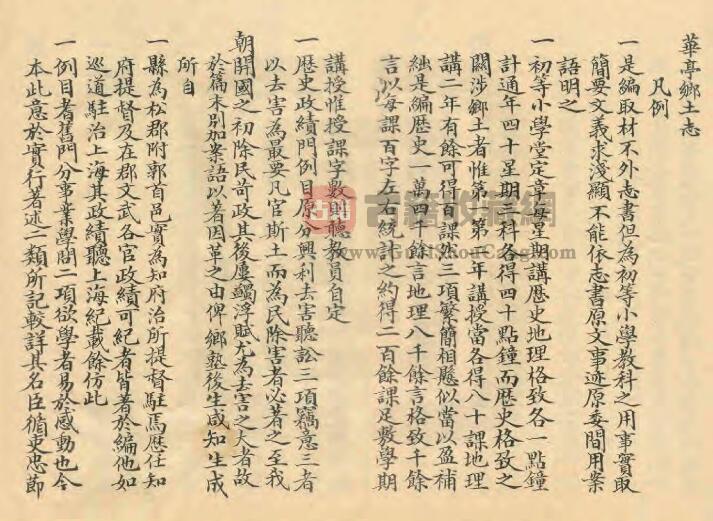 華亭鄉土志
凡例
一是編取材不外志書但為初等小學教科之用事實取
簡要文義求淺顯不能依志書原文事迹原委間用案
語明之
一初等小學堂定章每星期講歷史地理格致各一點鐘
計通年四十星期三科各得四十點鐘而歷史格致之
關涉鄉土者惟第一第二年講授當各得八十課地理
講二年有餘可得百課然三項繁簡相懸似當以盈補
絀是編歷史一萬四千餘言地理八千餘言格致千餘
言以每課百字左右統計之約得二百餘課足敷學期
講授惟授課字數則聽教員自定
一歷史政績門例目原分興利去害聽訟三項竊意三者
以去害為最要凡官斯土而為民除害者必著之至我
朝開國之初除民苛政其後屢蠲浮賦尤為去害之大者故
於篇末別加案語以著因革之由俾鄉塾後生咸知生成
所自
一縣為松郡附郭首邑實為知府治所提督駐焉歷任知
府提督及在郡文武各官政績可紀者皆著於編他如
巡道駐治上海其政績聽上海紀載餘仿此
一例目耆舊門分事業學問二項欲學者易於感動也今
本此意於實行著述二類所記較詳其名臣循吏忠節
古籍收藏網
www.GuJiShouCang.com